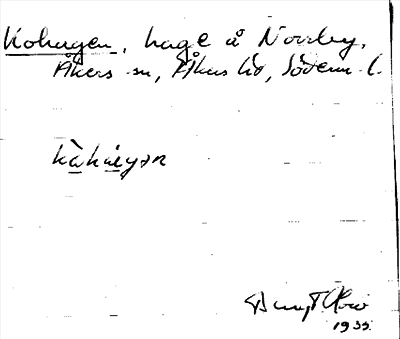 Kohagen, hage å Norrby,
Åkers sn, Åkers hd, Söderm. l.
kàháiyən
1935